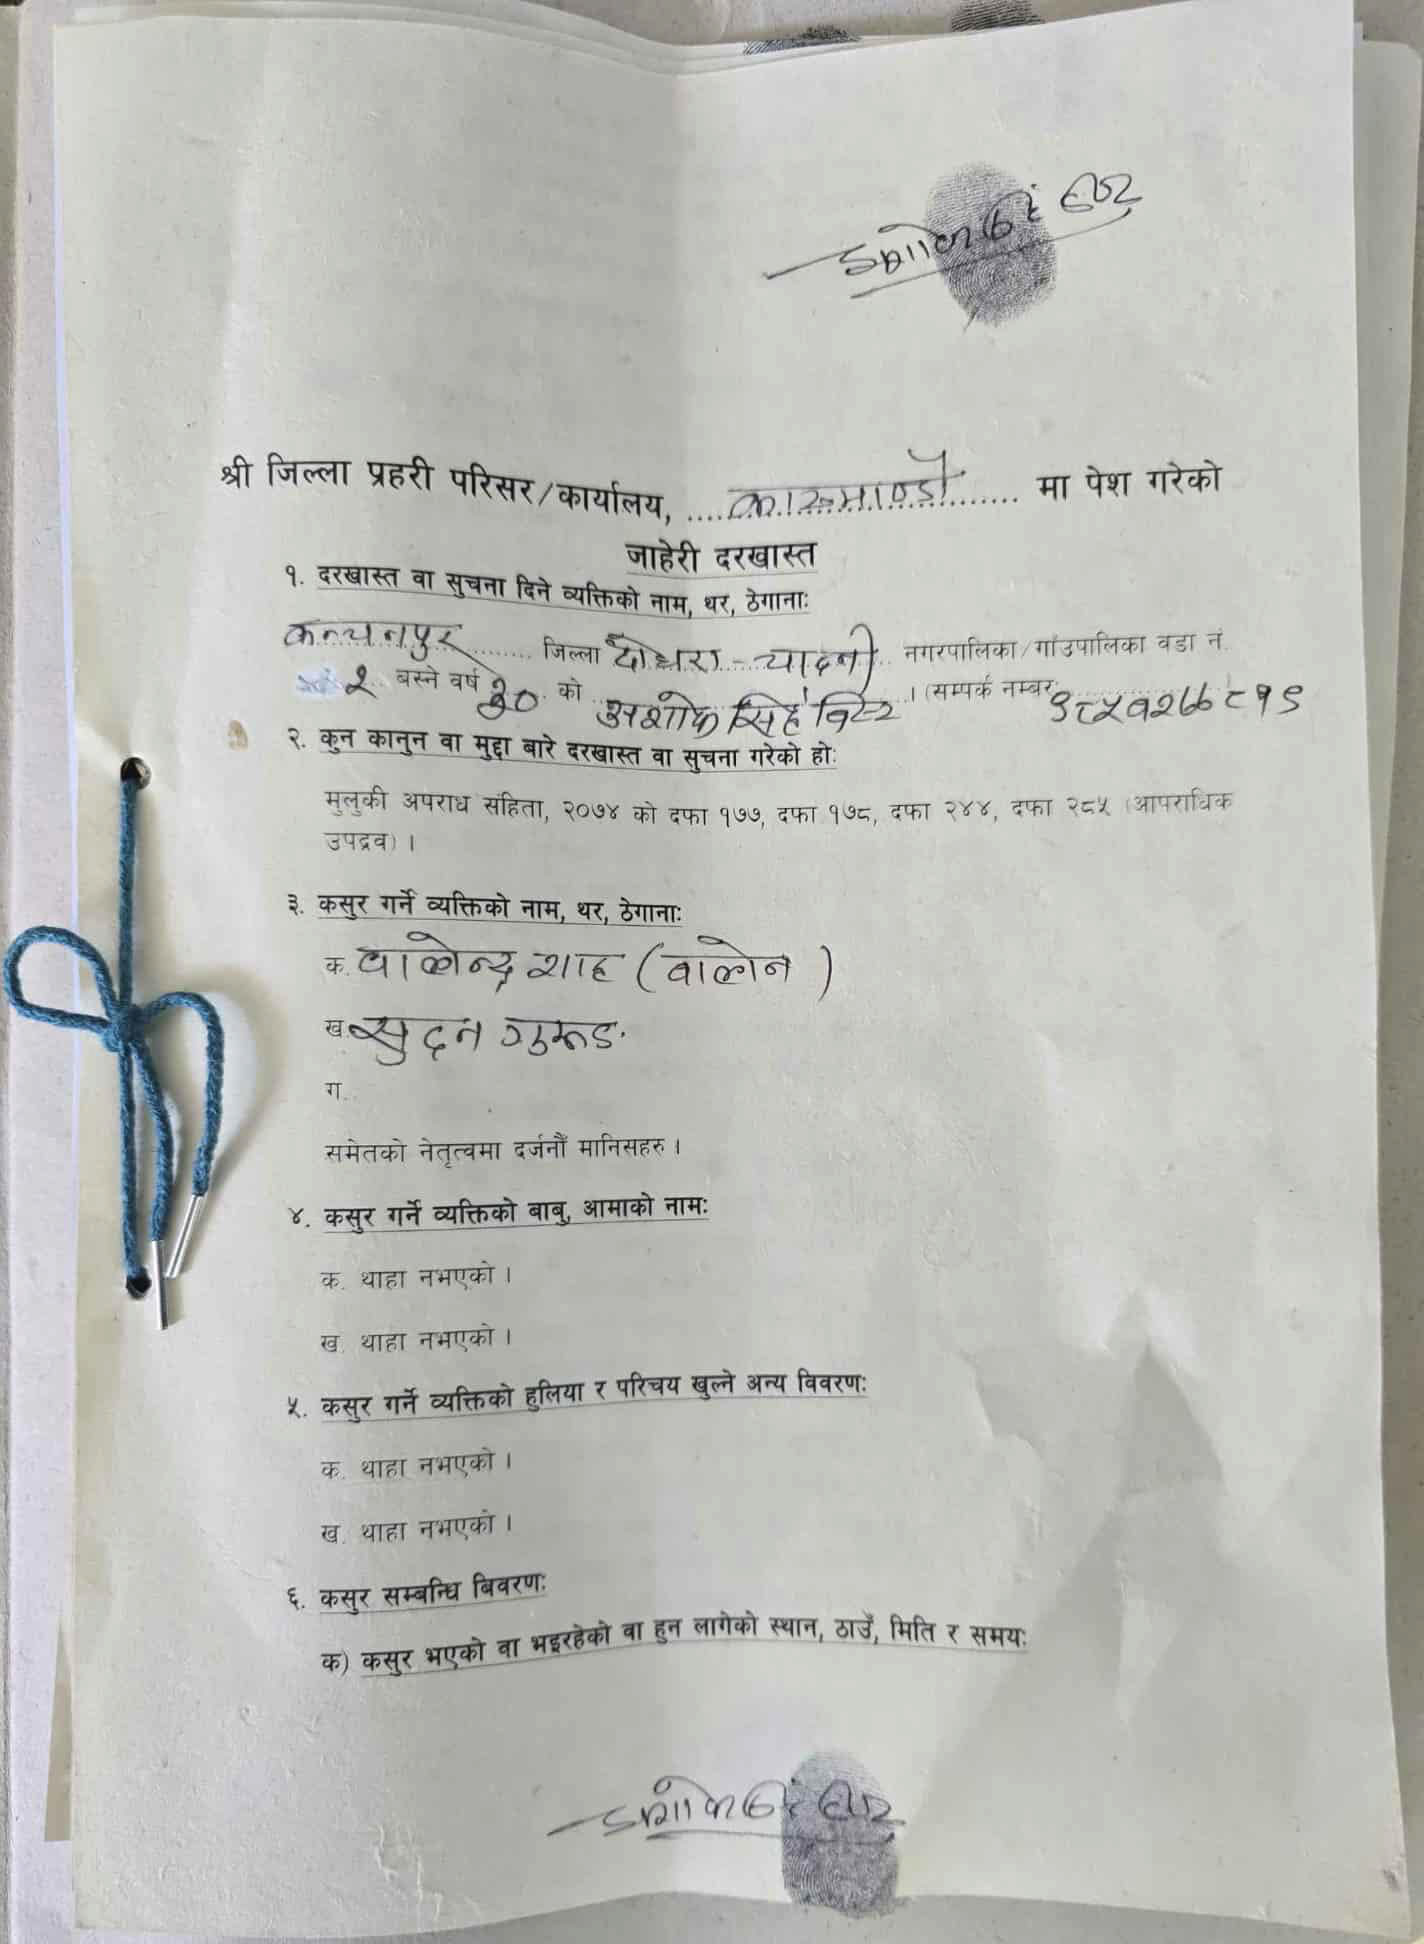 अशोक सिंह विष्ट
श्री जिल्ला प्रहरी परिसर/कार्यालय, ....काठमाण्डौ...... मा पेश गरेको
जाहेरी दरखास्त
१. दरखास्त वा सुचना दिने व्यक्तिको नाम, थर, ठेगानाः
कन्चनपुर ........ जिल्ला दोधारा-चादनी नगरपालिका/गाउपालिका वडा नं.
२ बस्ने वर्ष ३० को अशोक सिंह विष्ट । (सम्पर्क नम्बर ९८५१२७७८१९
२. कुन कानुन वा मुद्दा बारे दरखास्त वा सुचना गरेको होः
मुलुकी अपराध संहिता, २०७४ को दफा १७७, दफा १७८, दफा २४४, दफा २८५ (आपराधिक
उपद्रव) ।
३. कसुर गर्ने व्यक्तिको नाम, थर, ठेगानाः
क. वालेन्द्र शाह (वालेन )
ख. सुदन गुरुङ.
ग.
समेतको नेतृत्वमा दर्जनौँ मानिसहरु ।
४. कसुर गर्ने व्यक्तिको बाबु, आमाको नामः
क. थाहा नभएको ।
ख. थाहा नभएको ।
५. कसुर गर्ने व्यक्तिको हुलिया र परिचय खुल्ने अन्य विवरणः
क. थाहा नभएको ।
ख. थाहा नभएको ।
६. कसुर सम्बन्धि बिवरणः
क) कसुर भएको वा भइरहेको वा हुन लागेको स्थान, ठाउँ, मिति र समयः
अशोक सिंह विष्ट